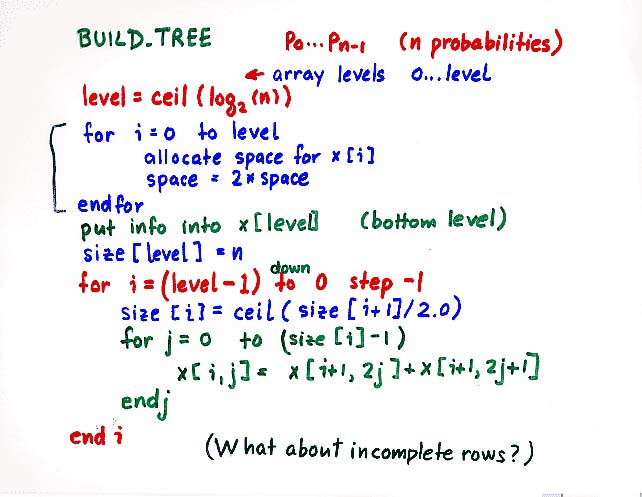 BUILD.TREE P0...Pn-1 (n probabilities)
← array levels 0...level
level = ceil (log2 (n))
for i = 0 to level
allocate space for x [i]
space = 2 * space
endfor
put info into x [level] (bottom level)
size [level] = n
for i = (level-1) down to 0 step -1
size [i] = ceil ( size [i+1]/2.0)
for j = 0 to (size [i]-1)
x[i,j] = x [i+1, 2j] + x [i+1, 2j+1]
endj
end i
(What about incomplete rows?)